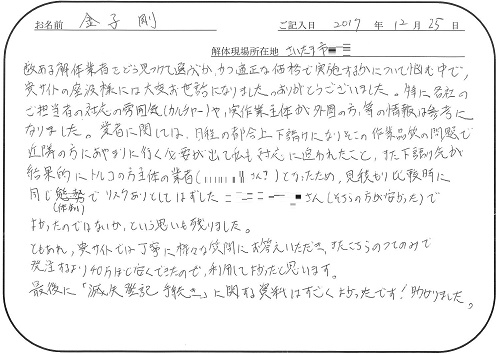 お名前 金子 剛 ご記入日 2017 年 12 月 25 日
解体現場所在地 さいたま市
数ある解体業者をどう見つけて選ぶか、かつ適正な価格で実施するかについて悩む中で、
貴サイトの 様には大変お世話になりました。ありがとうございました。特に各社の
ご担当者の対応の雰囲気(カルチャー)や、実作業主体が外国の方、等の情報は参考に
なりました。業者に関しては、日程の都合上下請けになりその作業品質の問題で
近隣の方にあやまりに行く必要が出て私も対応に追われたこと、また下請け先が
結果的にトルコの方主体の業者( さん?)となったため、見積り比較時に
同じ態勢でリスクありとしてはずした さん(そちらの方が安かった)で
(体制)
よかったのではないか、という思いも残りました。
ともあれ、貴サイトでは丁寧に様々な質問にお答えいただき、またこちらのつてのみで
発注するより40万ほど安くできたので、利用してよかったと思います。
最後に「滅失登記手続き」に関する資料はすごくよかったです!助かりました。